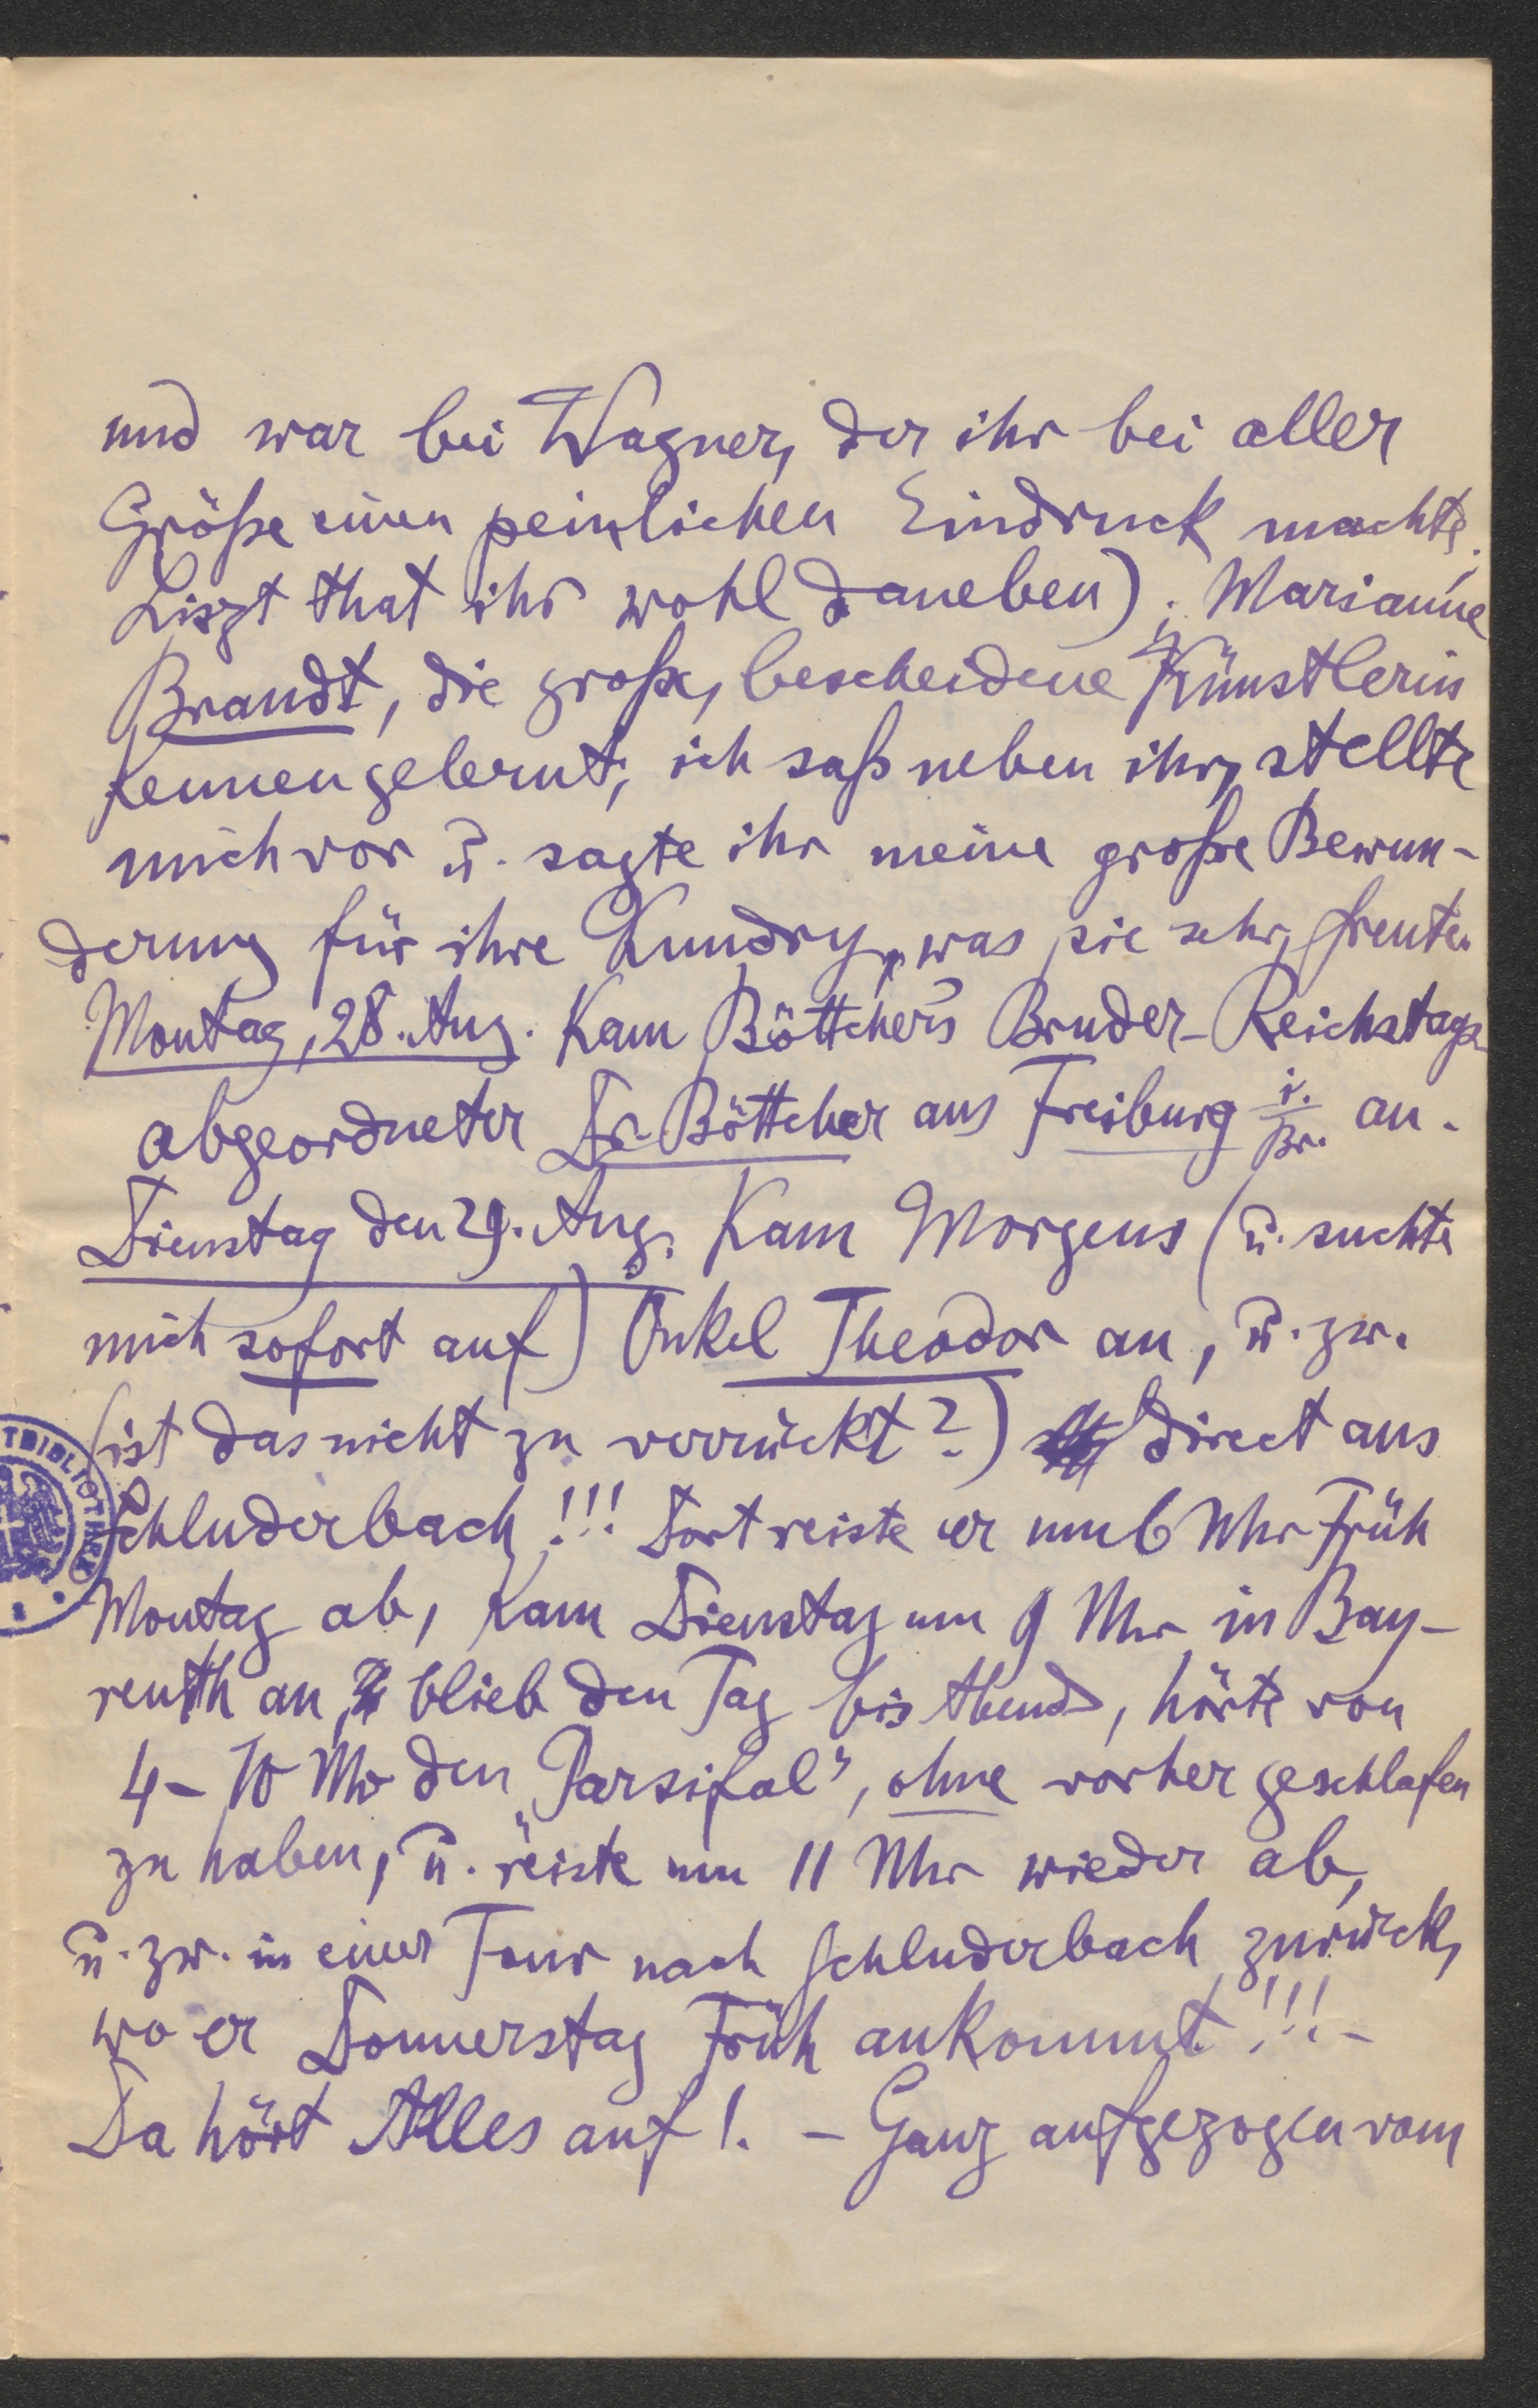 und war bei Wagner, der ihr bei aller
Größe einen peinlichen Eindruck machte.
Liszt that ihr wohl daneben); Marianne
Brandt, die große, bescheidene Künstlerin
kennen gelernt; ich saß neben ihr, stellte
mich vor u. sagte ihr meine große Bewun-
derung für ihre Kundry, was sie sehr freute.
Montag, 28. Aug. kam Böttchers Bruder - Reichstags-
abgeordneter Dr. Böttcher aus Freiburg i. Br. an.
Dienstag den 29. Aug. kam Morgens (u. suchte
mich sofort auf) Onkel Theodor an, u. zw.
(ist das nicht zu verrückt?) direct aus
Schluderbach!!! Dort reiste er um 6 Uhr Früh
Montag ab, kam Dienstag um 9 Uhr in Bay-
reuth an, blieb den Tag bis Abend, hörte von
4 - 10 Uhr den „Parsifal", ohne vorher geschlafen
zu haben, u. reiste um 11 Uhr wieder ab,
u. zw. in einer Tour nach Schluderbach zurück,
wo er Donnerstag Früh ankommt!!! -
Da hört Alles auf!. - Ganz aufgezogen vom